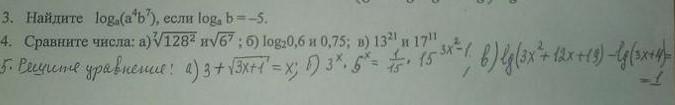 3. Найдите logₐ(a⁴b⁷), если logₐ b = –5.
4. Сравните числа: а) ∛128² и √6⁷ ; б) log₂0,6 и 0,75; в) 13²¹ и 17¹¹
5. Решите уравнение: а) 3+√3x+1 = x; б) 3ˣ·5ˣ = 1/15 · 15^3x²-1; в) lg(3x²+12x+19) – lg(3x+4) =
= 1